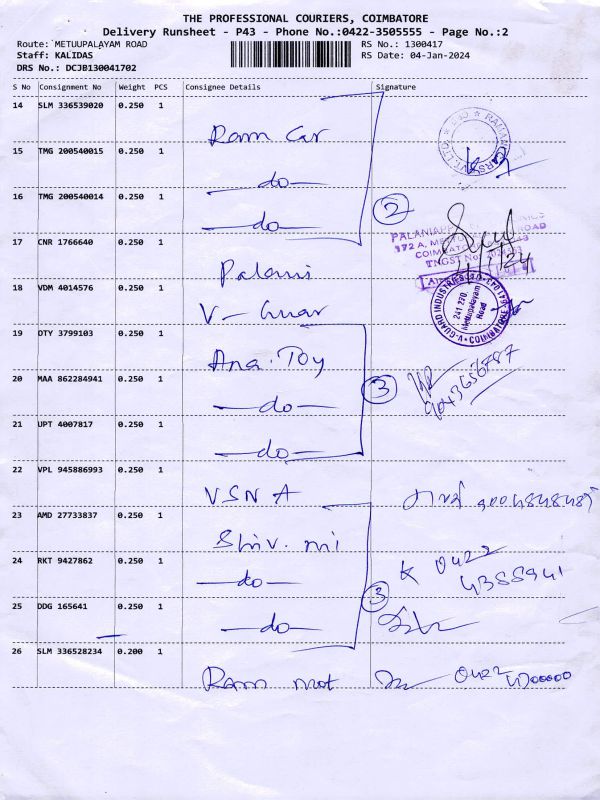 THE PROFESSIONAL COURIERS, COIMBATORE
Delivery Runsheet - P43 - Phone No.:0422-3505555 - Page No.:2
Route: METUUPALAYAM ROAD RS No.: 1300417
Staff: KALIDAS RS Date: 04-Jan-2024
DRS No.: DCJB130041702
S No Consignment No Weight PCS Consignee Details Signature
14 SLM 336539020 0.250 1
Ram Car
15 TMG 200540015 0.250 1
-do-
16 TMG 200540014 0.250 1
-do- 2
17 CNR 1766640 0.250 1
Palani
18 VDM 4014576 0.250 1
V-Guar
19 DTY 3799103 0.250 1
Ana.Toy
20 MAA 862284941 0.250 1
-do- 3
21 UPT 4007817 0.250 1
-do-
22 VPL 945886993 0.250 1
VSNA
23 AMD 27733837 0.250 1
Shiv.mi
24 RKT 9427862 0.250 1
-do- K 0422
25 DDG 165641 0.250 1
-do- 3
26 SLM 336528234 0.200 1
Ram mot 0422
V-GUARD INDUSTRIES
COIMBATORE
241 270
Mettupalayam
Road